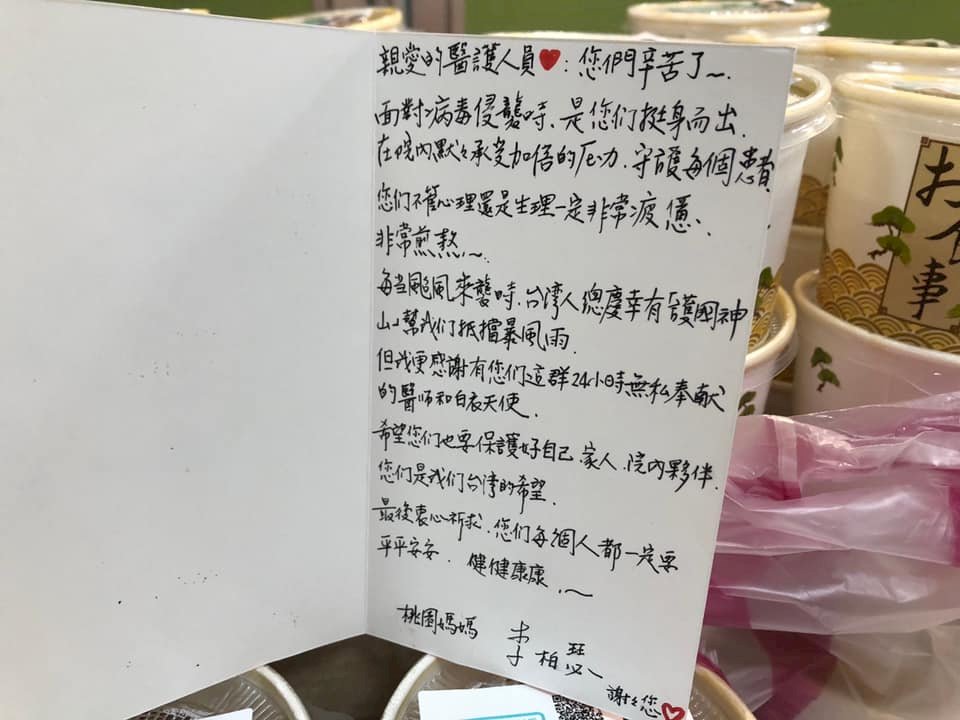 親愛的醫護人員❤:您們辛苦了~.
面對病毒侵襲時.是您们挺身而出.
在院內默々承受加倍的压力.守護每個患者
您们不管心理還是生理一定非常疲憊、
非常煎熬.~
每当颱風來襲時.台湾人總慶幸有「護國神
山」幫我们抵擋暴風雨.
但我更感謝有您们這群24小時無私奉献
的醫师和白衣天使.
希望您们也要保護好自己.家人.院內夥伴.
您们是我们台湾的希望.
最後衷心祈求.您们每個人都一定要
平平安安.健健康康.~
桃園媽媽 李柏
謝々您♡
事